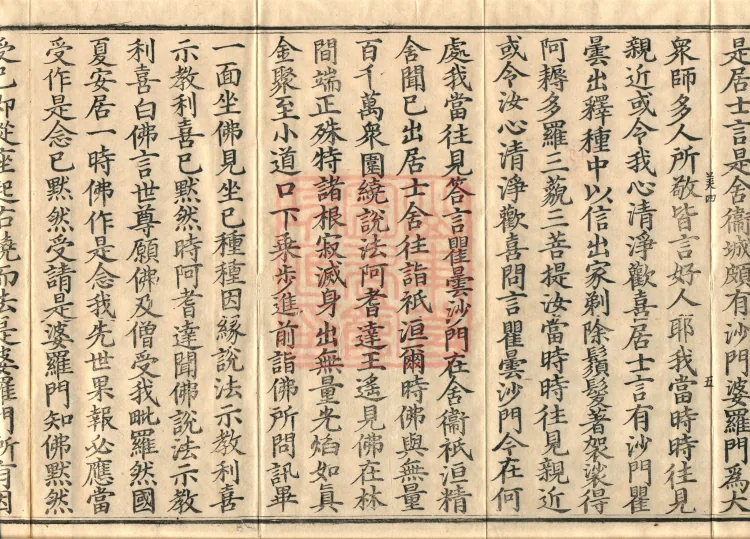 是居士言是舍衛城頗有沙門婆羅門爲大
美四 五
衆師多人所敬皆言好人耶我當時時往見
親近或令我心清淨歡喜居士言有沙門瞿
曇出釋種中以信出家剃除鬚髮著袈裟得
阿耨多羅三藐三菩提汝當時時往見親近
或令汝心清淨歡喜問言瞿曇沙門今在何
處我當往見答言瞿曇沙門在舍衞祇洹精
舍聞已出居士舍往詣祇洹爾時佛與無量
百千萬衆圍繞說法阿耆達王遙見佛在林
間端正殊特諸根寂滅身出無量光焰如眞
金聚至小道口下乘步進前詣佛所問訊畢
一面坐佛見坐已種種因緣說法示教利喜
示教利喜已默然時阿耆達聞佛說法示教
利喜白佛言世尊願佛及僧受我毗羅然國
夏安居一時佛作是念我先世果報必應當
受作是念已默然受請是婆羅門知佛默然
受已即從座起右繞而去是婆羅門所有因